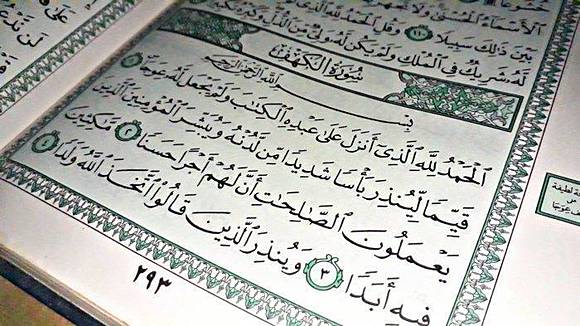 ٱلْأَسْمَآءُ ٱلْحُسْنَىٰ وَلَا
بَيْنَ ذَٰلِكَ سَبِيلًا ۝١١٠ وَقُلِ ٱلْحَمْدُ لِلَّهِ ٱلَّذِى
لَّهُۥ شَرِيكٌ فِى ٱلْمُلْكِ وَلَمْ يَكُن لَّهُۥ وَلِىٌّ مِّنَ ٱلذُّلِّ وَكَبِّرْهُ تَكْبِيرًا
سُورَةُ الكَهْفِ
بِسْمِ ٱللَّهِ ٱلرَّحْمَٰنِ ٱلرَّحِيمِ
ٱلْحَمْدُ لِلَّهِ ٱلَّذِىٓ أَنزَلَ عَلَىٰ عَبْدِهِ ٱلْكِتَٰبَ وَلَمْ يَجْعَل لَّهُۥ عِوَجَا ۜ ۝١
قَيِّمًا لِّيُنذِرَ بَأْسًا شَدِيدًا مِّن لَّدُنْهُ وَيُبَشِّرَ ٱلْمُؤْمِنِينَ ٱلَّذِينَ
يَعْمَلُونَ ٱلصَّٰلِحَٰتِ أَنَّ لَهُمْ أَجْرًا حَسَنًا ۝٢ مَّٰكِثِينَ
فِيهِ أَبَدًا ۝٣ وَيُنذِرَ ٱلَّذِينَ قَالُوا۟ ٱتَّخَذَ ٱللَّهُ وَلَدًا ۝٤
٢٩٣